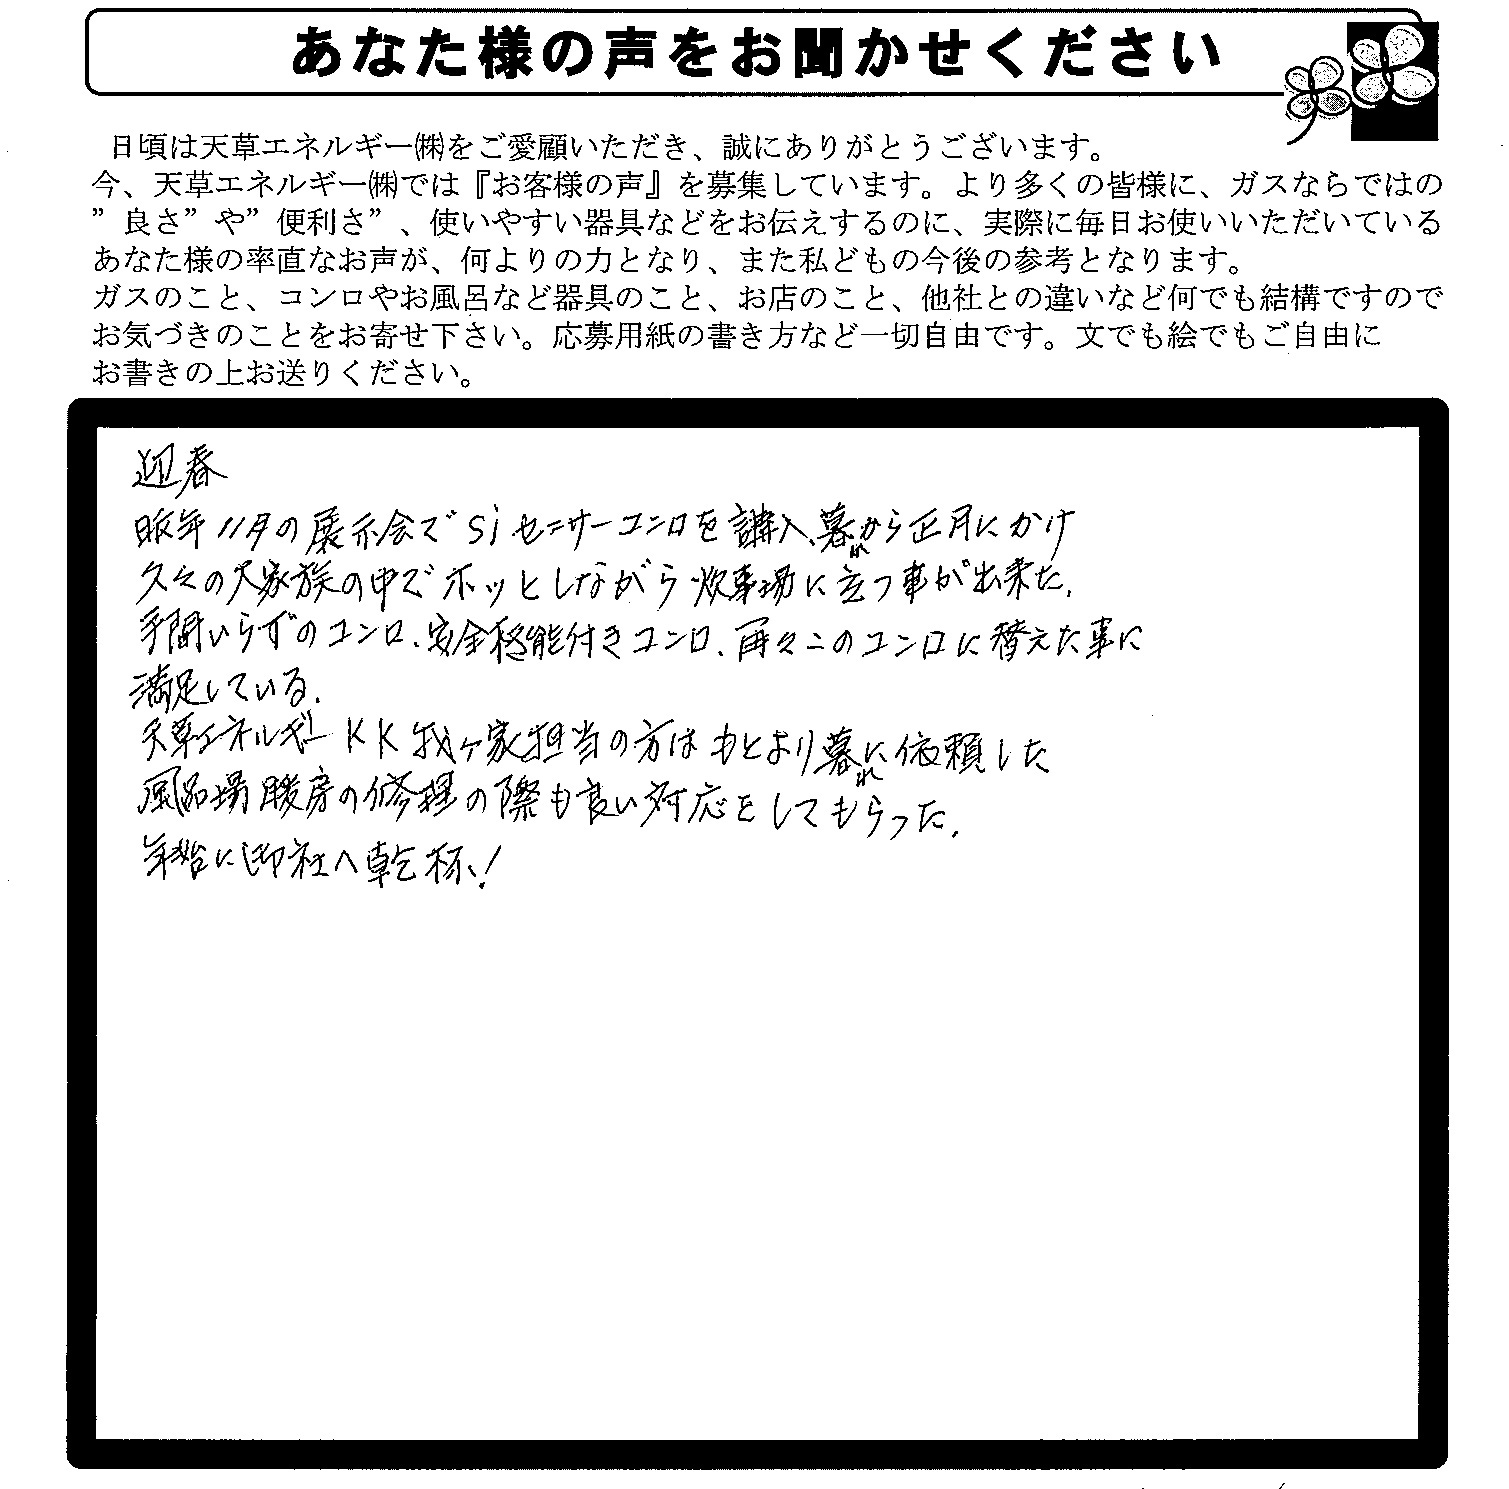 あなた様の声をお聞かせください
日頃は天草エネルギー㈱をご愛顧いただき、誠にありがとうございます。
今、天草エネルギー㈱では『お客様の声』を募集しています。より多くの皆様に、ガスならではの
”良さ”や”便利さ”、使いやすい器具などをお伝えするのに、実際に毎日お使いいただいている
あなた様の率直なお声が、何よりの力となり、また私どもの今後の参考となります。
ガスのこと、コンロやお風呂など器具のこと、お店のこと、他社との違いなど何でも結構ですので
お気づきのことをお寄せ下さい。応募用紙の書き方など一切自由です。文でも絵でもご自由に
お書きの上お送りください。
迎春
昨年11月の展示会でSiセンサーコンロを購入、暮れから正月にかけ
久々の大家族の中でホッとしながら炊事場に立つ事が出来た.
手間いらずのコンロ、安全機能付きコンロ、再々このコンロに替えた事に
満足している.
天草エネルギーKK我ヶ家担当の方はもとより暮れに依頼した
風呂場暖房の修理の際も良い対応をしてもらった.
年始に御社へ乾杯!